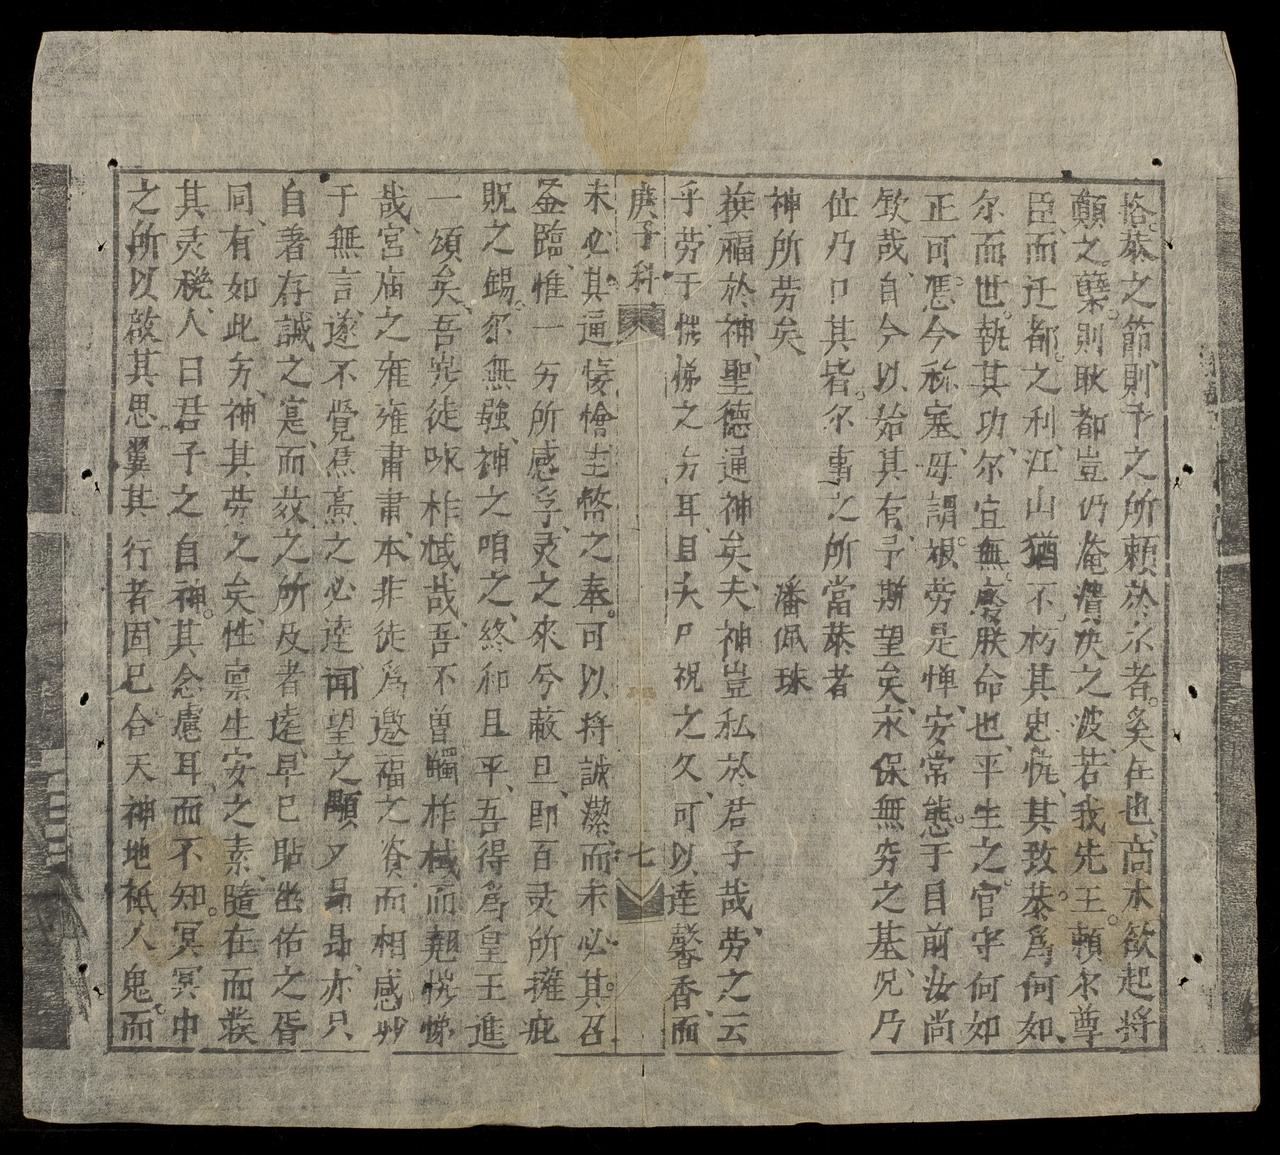 恪恭之節、則予之所賴於尔者。奚在也、高水欲起、將
顛之孽。則耿都豈仍淹瀆决之波、若我先王。賴尔尊
臣、而迁都。之利、江山猶不。朽其忠悦、其致恭。爲何如、
尔而世。執其功、尔宜無。廢朕命也、平生之。官守何如
正可。憑今称塞、毋謂。根劳是惮、安常態。于目前汝尚
欽哉、自今以始其有、予斯望矣、永保無穷之基、况乃
位乃口其皆。尔事之所當恭者
神所劳矣
潘佩珠
禄福於神、聖德通神矣夫、神豈私於君子哉、劳之云
乎、劳于愷悌之方耳、且夫尸祝之久、可以達馨香、而
庚子科
七
未必其通悽愴、圭幣之奉。可以将誠潔、而未必其。召
鉴臨、惟一方所感孚、灵之來兮蔽旦、即百灵所擁、庇
貺之錫。尔無疆、神之咱之、終和且平、吾得爲皇王進
一頌矣、吾 徒咏柞棫哉、吾不曾矚柞棫而翹愷悌
哉、宮庙之雍雍肃肃、本非徒爲邀福之資、而相感妙
于無言、遂不覺焄蒿之必達、闻望之顒夕昴昴、亦只
自著存誠之寔、而效之所及者逺、早已貼幽佑之胥
同、有如此方、神其劳之矣、性禀生安之素、隨在而裝
其灵稅、人曰君子之自神。其念慮耳、而不知。冥冥中
之所以啟其思。翼其行者、固已合天神地祇人鬼。而